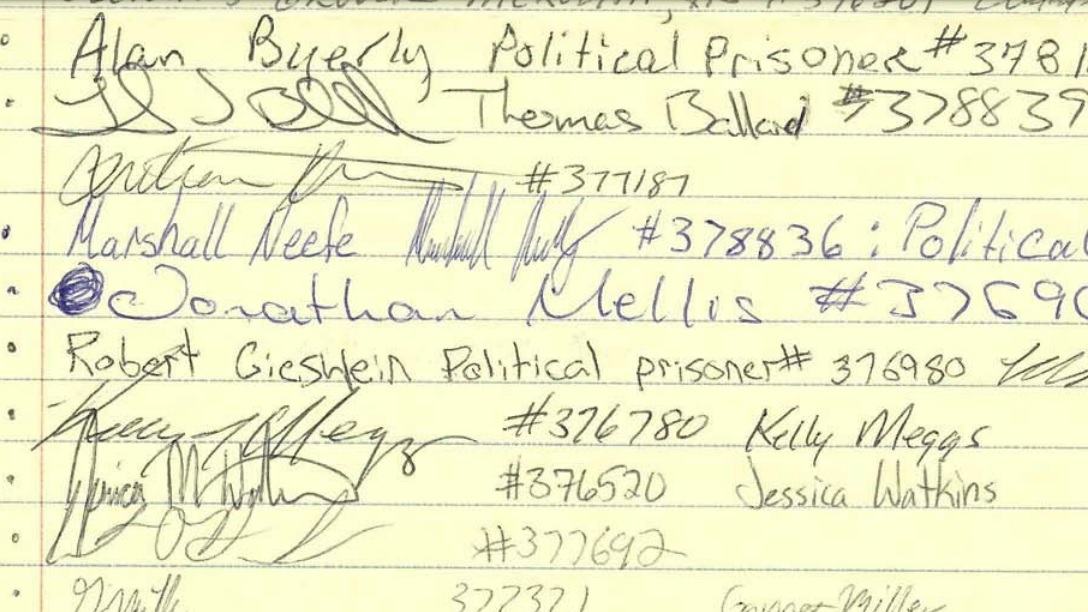 Alan Byerly Political Prisoner #3781
Thomas Ballard #378839
#377187
Marshall Neefe #378836 : Political
Jonathan Mellis #37690
Robert Gieswein Political prisoner# 376980
#376780 Kelly Meggs
#376520 Jessica Watkins
#377692
377371 Miller